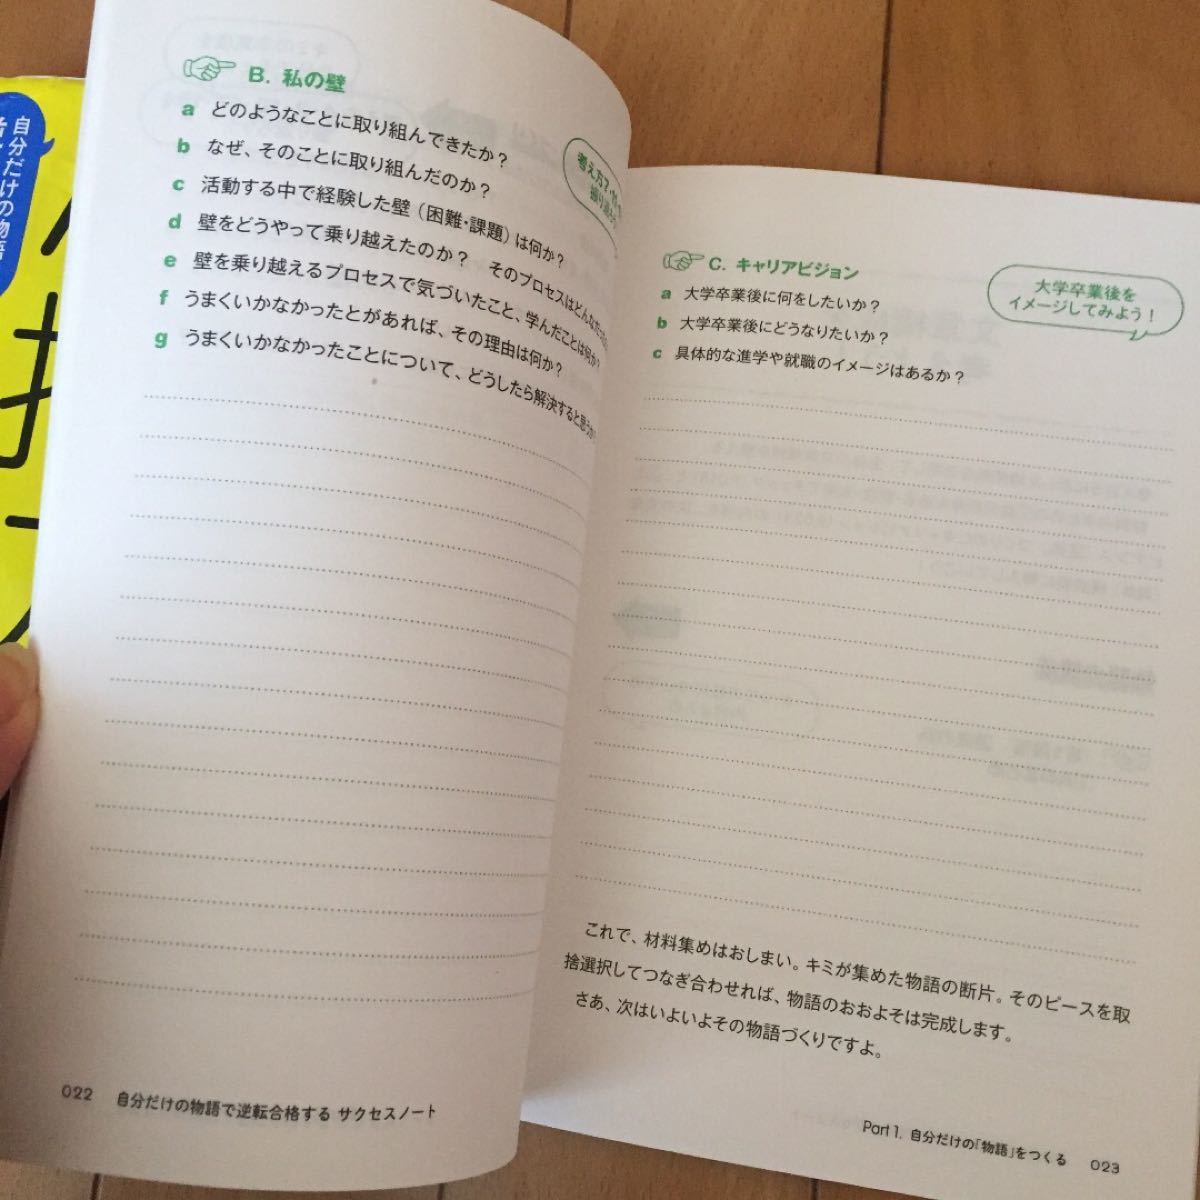 自分だけの物語
B. 私の壁
a どのようなことに取り組んできたか?
b なぜ、そのことに取り組んだのか?
c 活動する中で経験した壁(困難・課題)は何か?
d 壁をどうやって乗り越えたのか? そのプロセスはどんな
e 壁を乗り越えるプロセスで気づいたこと、学んだことは何か?
f うまくいかなかったとがあれば、その理由は何か?
g うまくいかなかったことについて、どうしたら解決すると思うか
考え方?
振り返
022 自分だけの物語で逆転合格する サクセスノート
C. キャリアビジョン
大学卒業後を
イメージしてみよう!
a 大学卒業後に何をしたいか?
b 大学卒業後にどうなりたいか?
c 具体的な進学や就職のイメージはあるか?
これで、材料集めはおしまい。キミが集めた物語の断片。そのピースを取
捨選択してつなぎ合わせれば、物語のおおよそは完成します。
さあ、次はいよいよその物語づくりですよ。
Part 1. 自分だけの「物語」をつくる 023